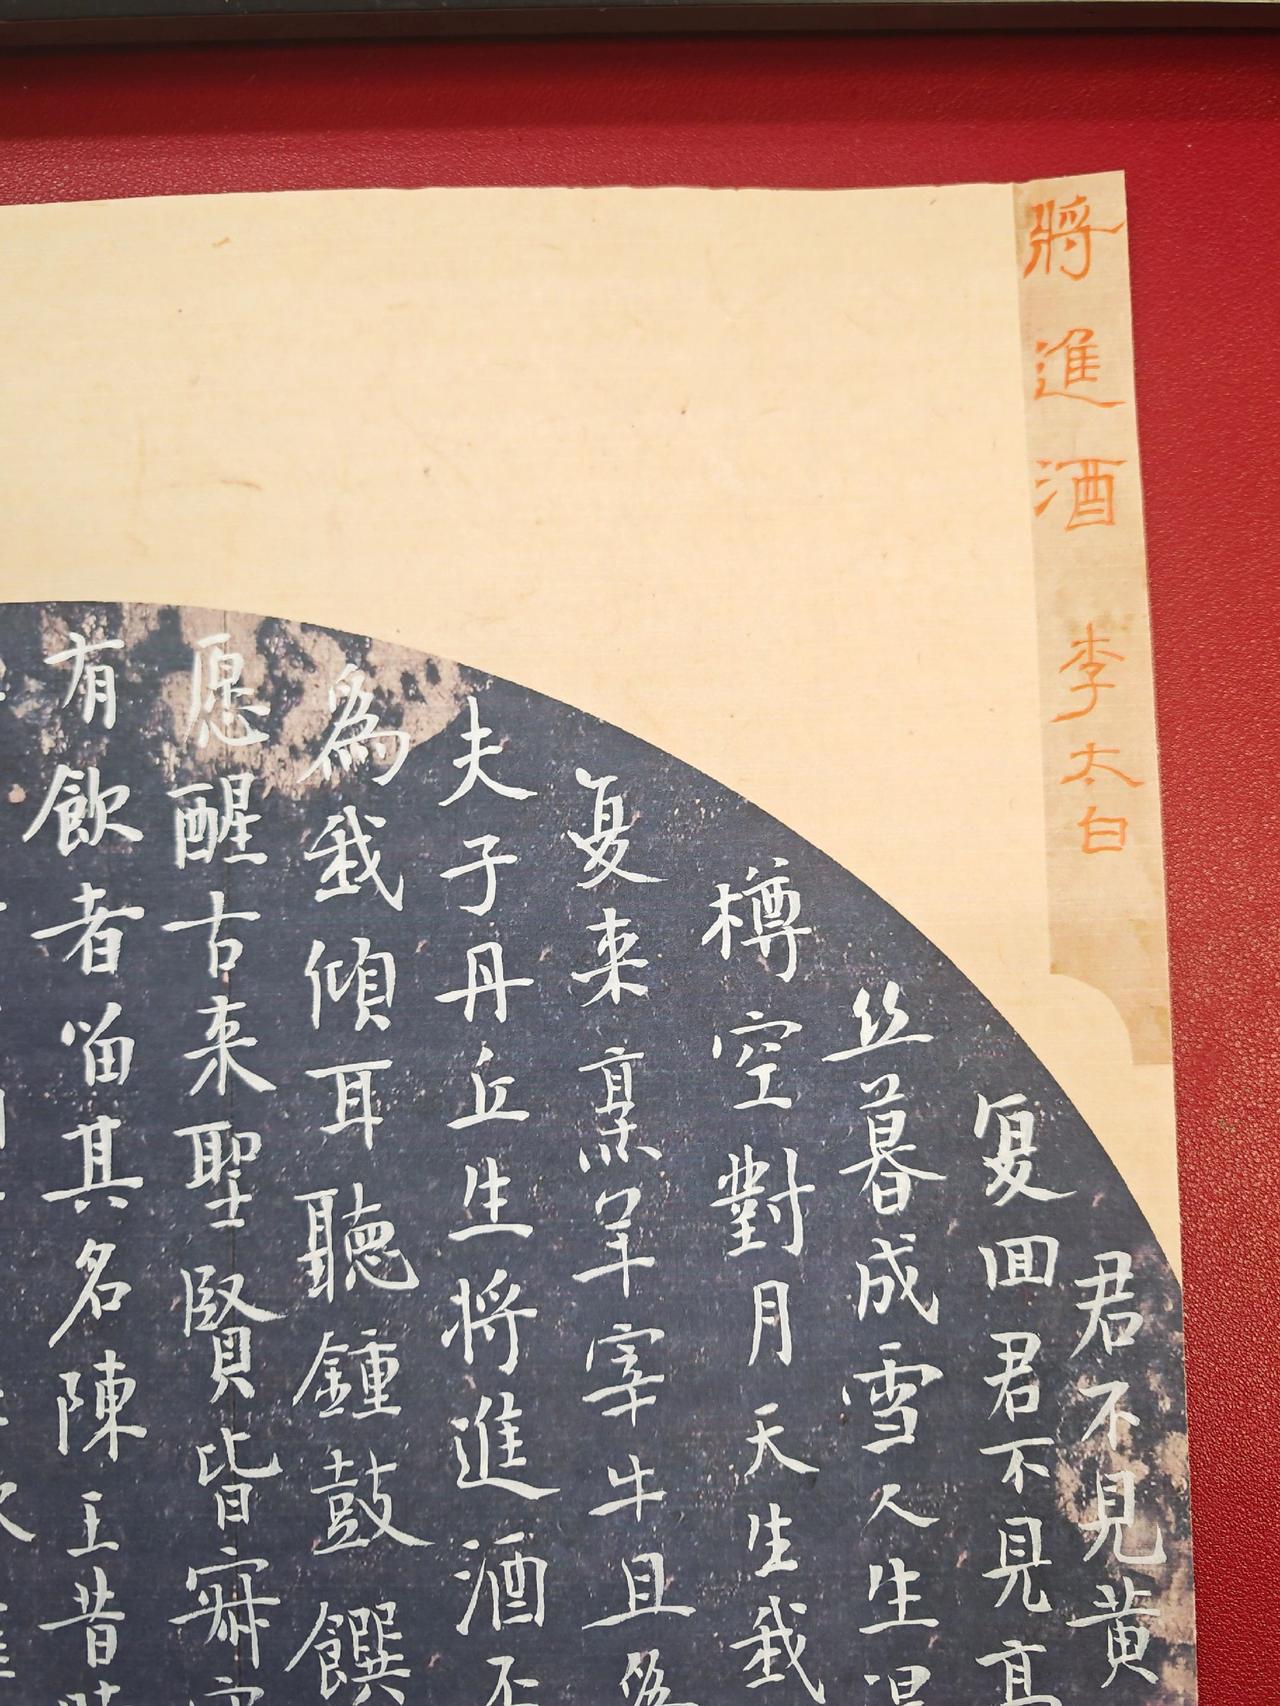 將進酒 李太白
君不見黃
复回君不見高
丝暮成雪人生得
樽空對月天生我
复来烹羊宰牛且為
夫子丹丘生将進酒
為我傾耳聽鍾鼓饌
愿醒古来聖賢皆寂
有飲者留其名陳王昔時